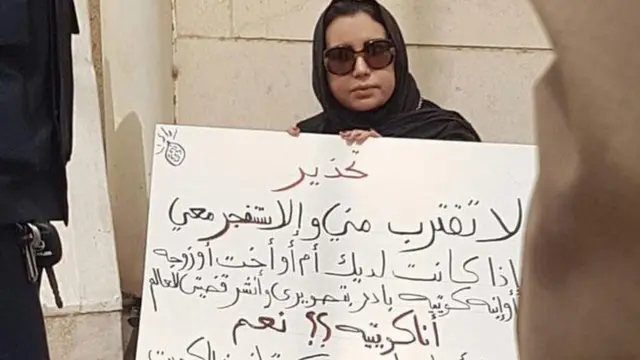 تحذير
لا تقترب مني وإلا ستنفجر معي
إذا كانت لديك أم أو أخت أو زوجه
أو إبنه كويتيه بادر بتصويري وأنشر قضيتي للعالم
أنا كويتيه ؟؟ نعم
الكويت